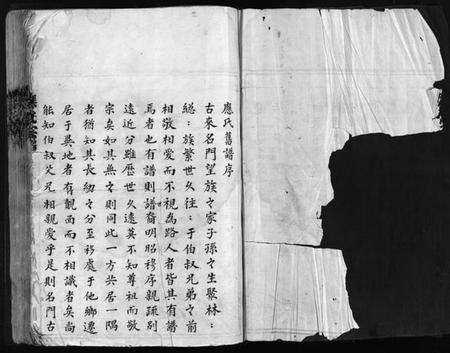 應氏舊譜序
古來名門望族之家子孫之生聚林:
緦:族繁世久往:于伯叔兄弟之前
相敬相愛而不視為路人者皆其有譜
焉者也有譜則譜裔明昭穆序親疎別
遠近分雖歷世久遠莫不知尊祖而敬
宗矣如其無之則同此一方共居一隅
者猶知其長幼之分至移處于他鄉遷
居于異地者有覿面而不相識者矣尚
能知伯叔父兄相親愛乎是則名門古